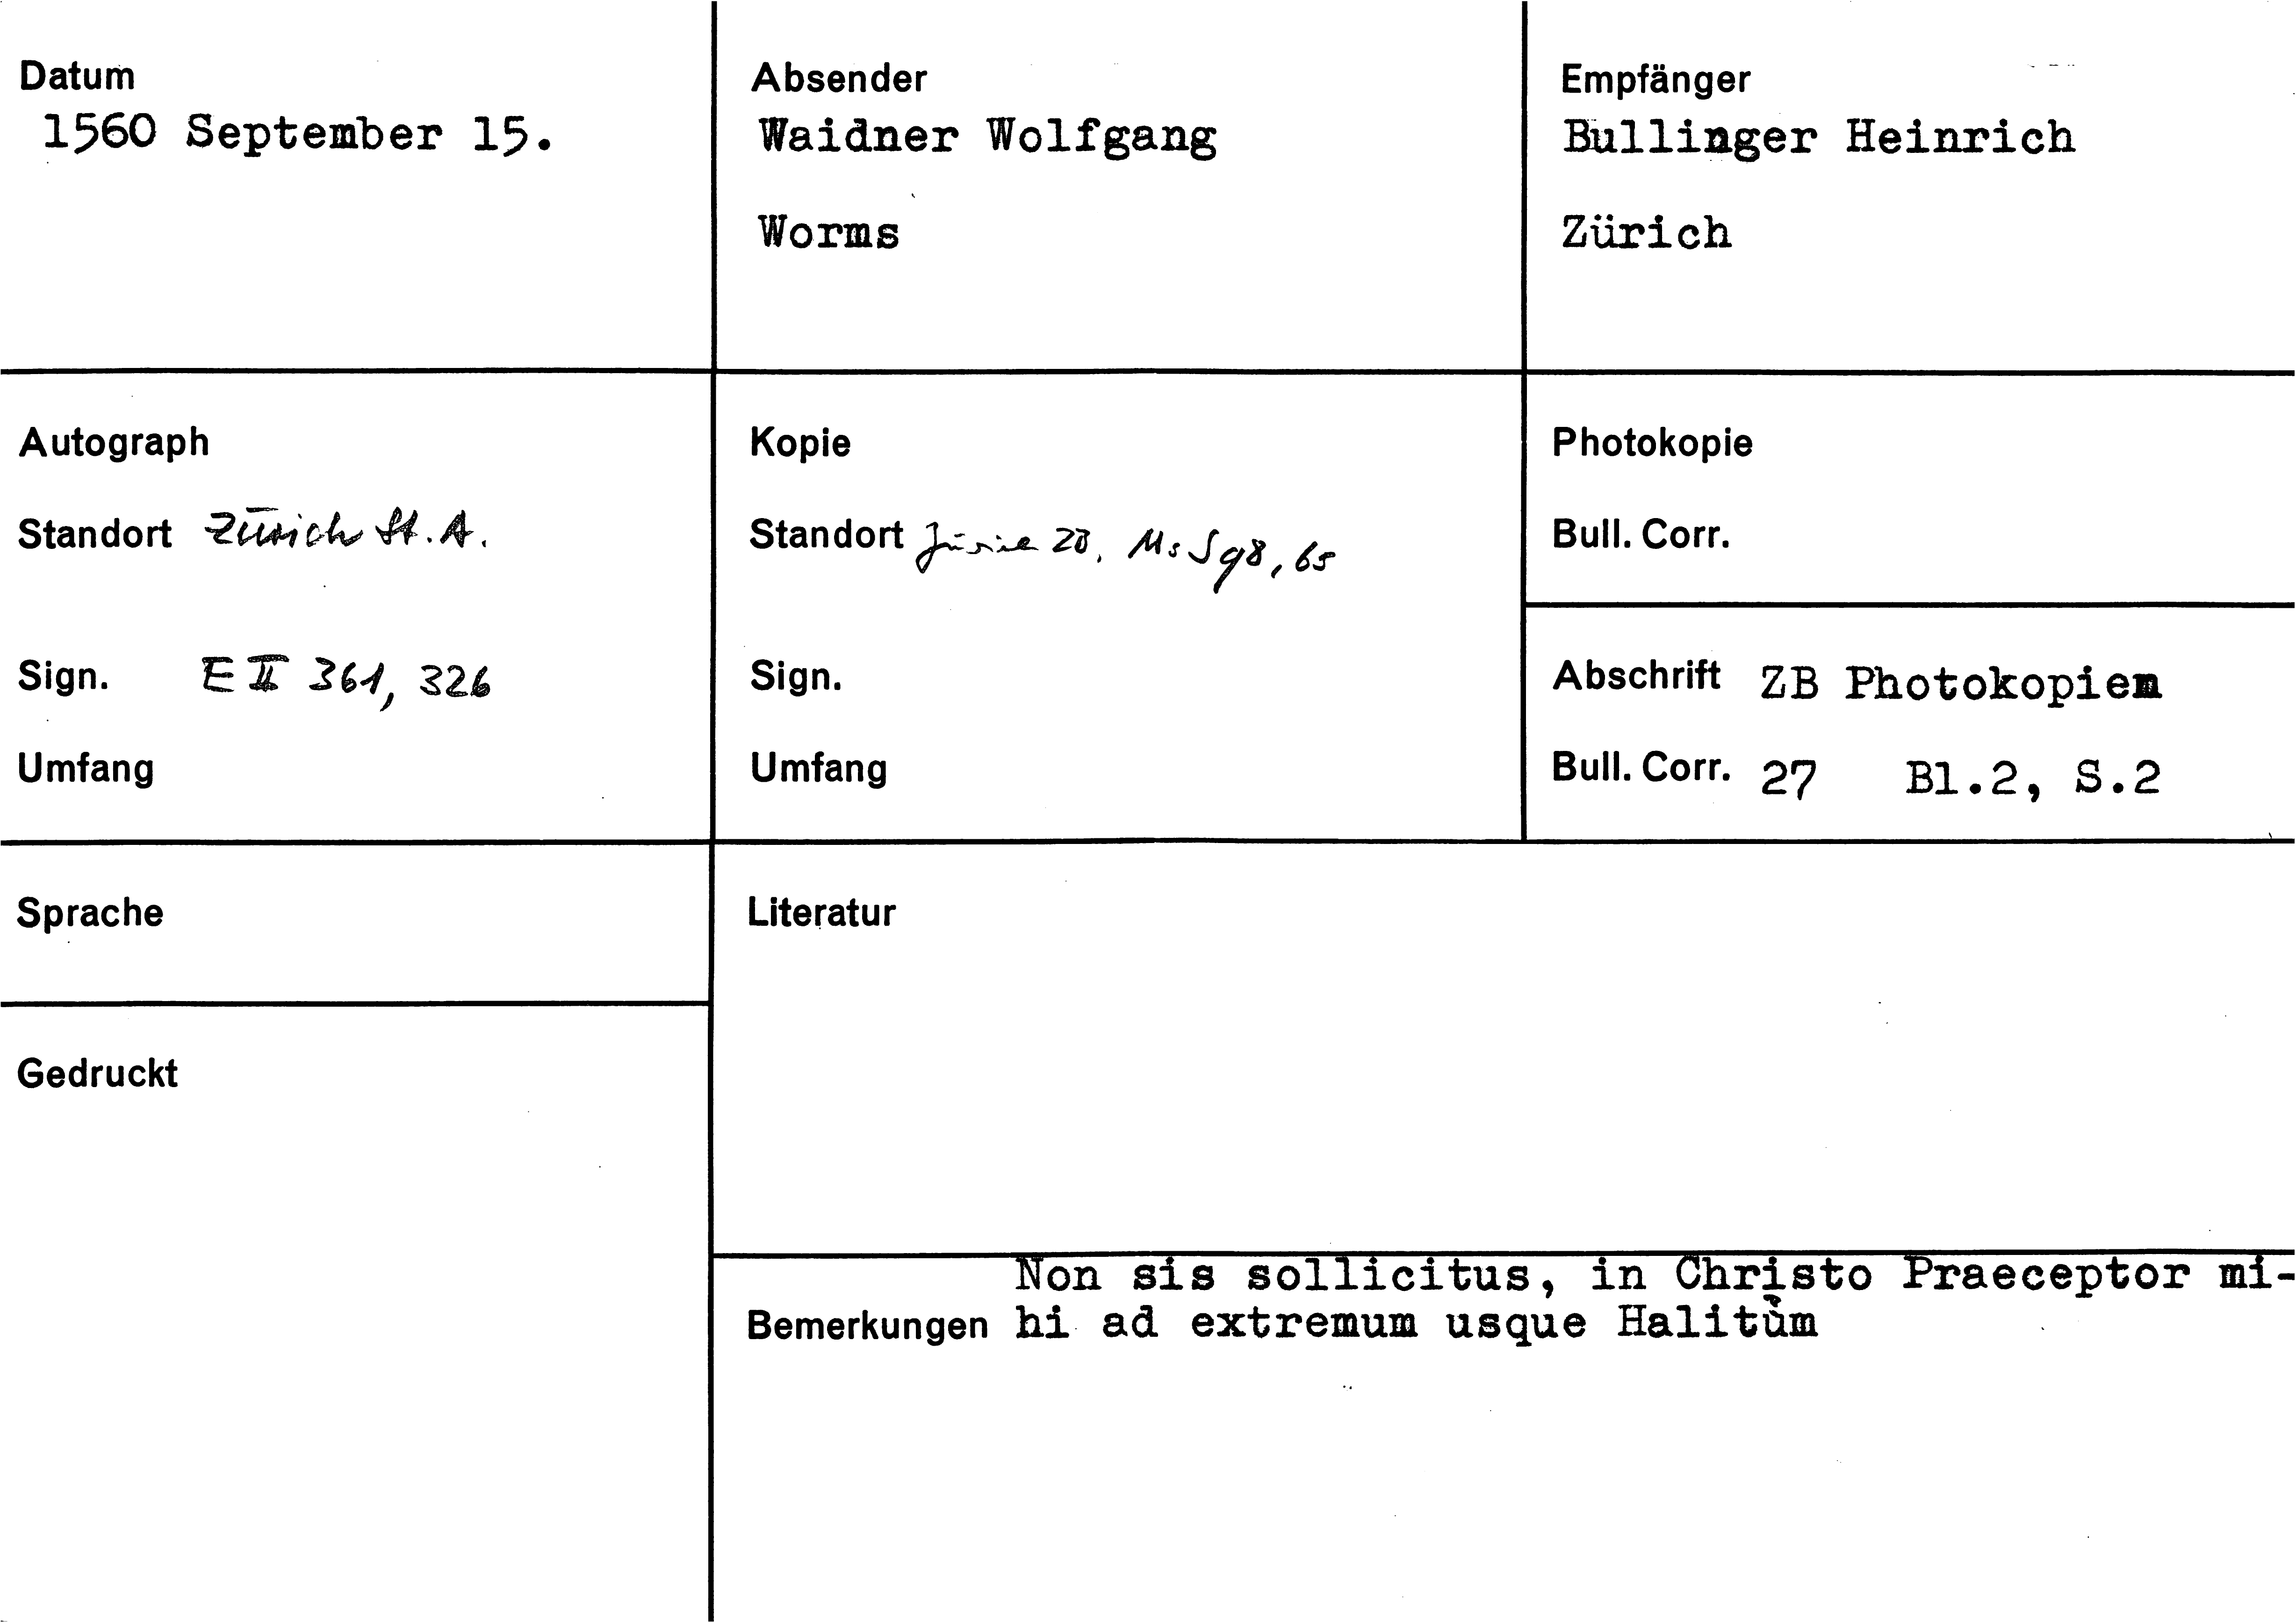 Datum
1560 September 15.
Absender
Waidner Wolfgang
Worms
Empfänger
Bullinger Heinrich
Zürich
Autograph
Standort Zürich St. A.
Sign. E II 361, 326
Umfang
Kopie
Standort Zürich ZB, Ms S 98, 65
Sign.
Umfang
Photokopie
Bull. Corr.
Abschrift ZB Photokopien
Bull. Corr. 27 Bl.2, S.2
Sprache
Gedruckt
Literatur
Non sis sollicitus, in Christo Praeceptor mi-
Bemerkungen hi ad extremum usque Halitum